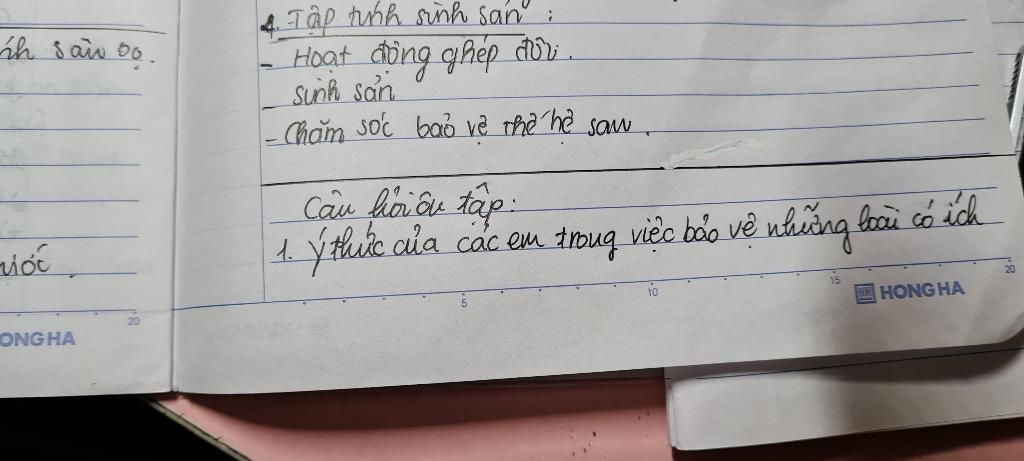 ính săn mồi.
4. Tập tính sinh sản :
- Hoạt động ghép đôi.
- sinh sản
- Chăm sóc bảo vệ thế hệ sau.
Câu hỏi ôn tập:
1. Ý thức của các em trong việc bảo vệ những loài có ích
5
10
15
20
HONG HA
20
ONG HA